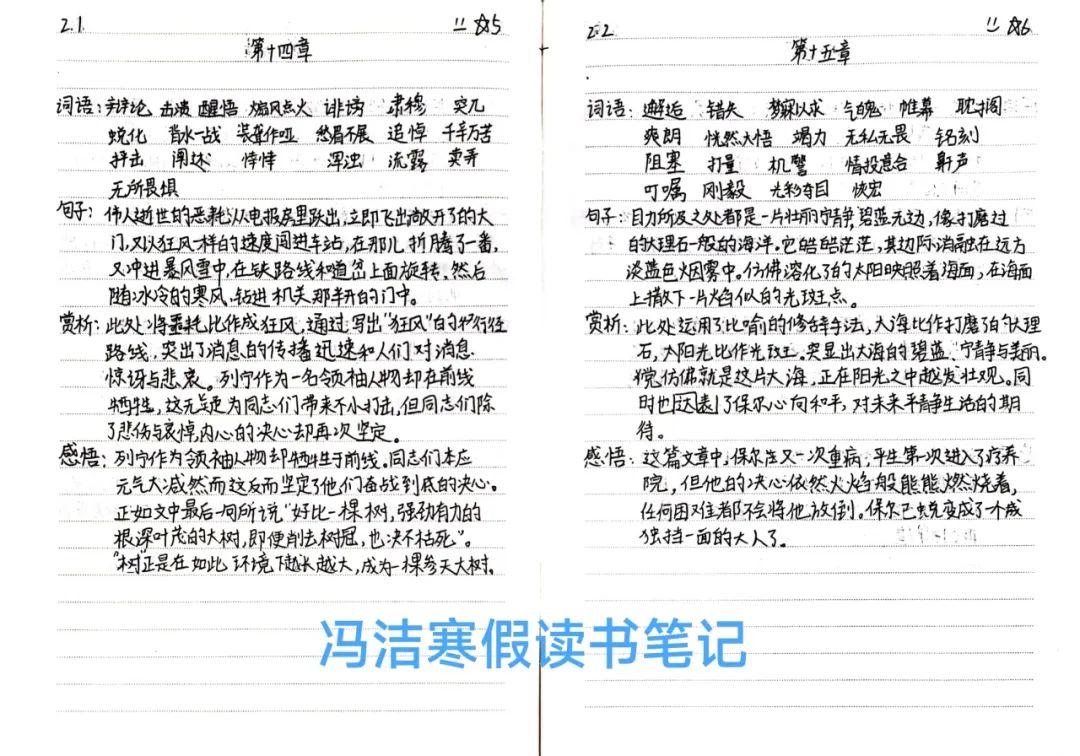 2.1 二☆5
第十四章
词语：辩论 击溃 醒悟 煽风点火 诽谤 肃穆 突兀
蜕化 背水一战 装聋作哑 愁眉不展 追悼 千辛万苦
抨击 阐述 悻悻 浑浊 流露 卖弄
无所畏惧
句子：伟人逝世的恶耗从电报房里跃出，立即飞出敞开了的大
门，又以狂风一样的速度闯进车站，在那儿折腾了一番，
又冲进暴风雪中，在铁路线和道岔上面旋转。然后
随冰冷的寒风，钻进机关那半开的门中。
赏析：此处将噩耗比作成狂风，通过写出“狂风”的行径
路线，突出了消息的传播迅速和人们对消息
惊讶与悲哀。列宁作为一名领袖人物却在前线
牺牲，这无疑更为同志们带来不小打击，但同志们除
了悲伤与哀悼，内心的决心却再次坚定。
感悟：列宁作为领袖人物却牺牲于前线。同志们本应
元气大减然而这反而坚定了他们奋战到底的决心。
正如文中最后一句所说“好比一棵树，强劲有力的
根深叶茂的大树，即便削去树冠，也决不枯死”。
“树”正是在如此环境下越长越大，成为一棵参天大树。
2.2 二☆6
第十五章
词语：邂逅 错失 梦寐以求 气魄 帷幕 耽搁
爽朗 恍然大悟 竭力 无私无畏 铭刻
阻塞 打量 机警 情投意合 鼾声
叮嘱 刚毅 光彩夺目 恢宏
句子：目力所及之处都是一片壮丽宁静，碧蓝无边，像打磨过
的大理石一般的海洋。它皓皓茫茫，其边际消融在远方
淡蓝色烟雾中。仿佛溶化了的太阳映照着海面，在海面
上撒下一片火焰似的光斑点。
赏析：此处运用了比喻的修辞手法，大海比作打磨了的大理
石，太阳光比作光斑。突显出大海的碧蓝、宁静与美丽。
我觉仿佛就是这片大海，正在阳光之中越发壮观。同
时也因表了保尔心向和平，对未来平静生活的期
待。
感悟：这篇文章中，保尔在又一次重病，平生第一次进入了疗养
院，但他的决心依然火焰般熊熊燃烧着，
任何困难都不会将他放倒。保尔已蜕变成了一个成
独挡一面的大人了。
冯洁寒假读书笔记